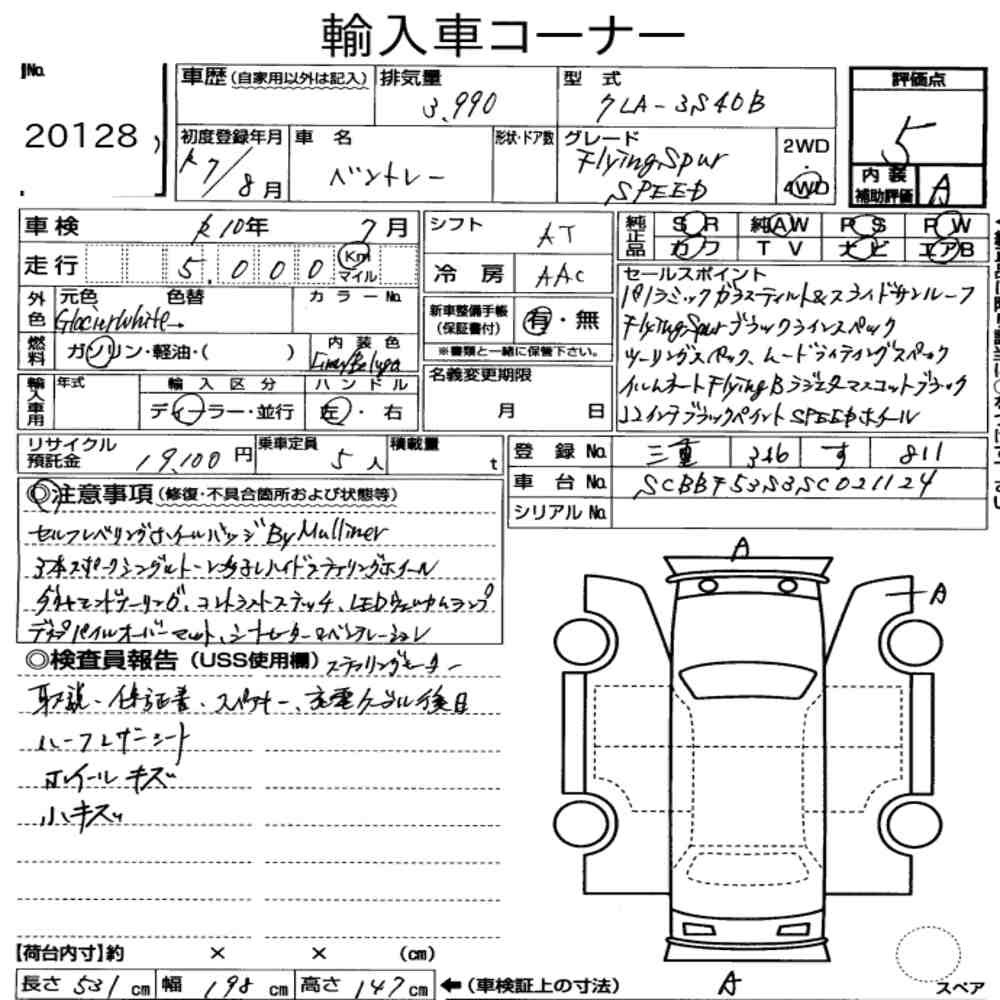 輸入車コーナー
No. 20128
車歴 (自家用以外は記入)
排気量 3,990
型式 7LA-3S40B
評価点 5
内装補助評価 A
初度登録年月 R7/8月
車名 ベントレー
形状・ドア数
グレード Flying Spur SPEED
2WD・4WD
車検 R10年 7月
走行 5,000 Km マイル
シフト AT
冷房 AAC
純正品 SR 純AW PS PW
カワ TV ナビ エアB
外色 元色 Glacier White 色替 カラーNo.
燃料 ガソリン・軽油・( )
内装色 Linen/Beluga
新車整備手帳 (保証書付) 有・無
※書類と一緒に保管下さい。
セールスポイント
パノラミックガラスティルト&スライドサンルーフ
Flying Spur ブラックラインスペック
ツーリングスペック、ムードライティングスペック
イルムオート Flying B ラジエターマスコットブラック
22インチブラックペイント SPEEDホイール
輸入車用 年式
輸入区分 ディーラー・並行
ハンドル 左・右
名義変更期限 月 日
リサイクル預託金 19,100円
乗車定員 5人
積載量 t
登録No. 三重 346 す 811
車台No. SCBBF53S3SC021124
シリアルNo.
◎注意事項 (修復・不具合箇所および状態等)
セルフレベリングホイールバッジ By Mulliner
3本スポークシングルトーン
ハイドステアリングホイール
ダイヤモンドキルティング、コントラストステッチ、LEDウェルカムランプ
ディープパイルオーバーマット、シートヒーター&ベンチレーション
◎検査員報告 (USS使用欄) ステアリングヒーター
取説・保証書・スペアキー、充電ケーブル後日
ハーフレザーシート
ホイールキズ
小キズ
A
A
A
【荷台内寸】約 × × (cm)
長さ 531 cm 幅 198 cm 高さ 147 cm ←(車検証上の寸法)
スペア